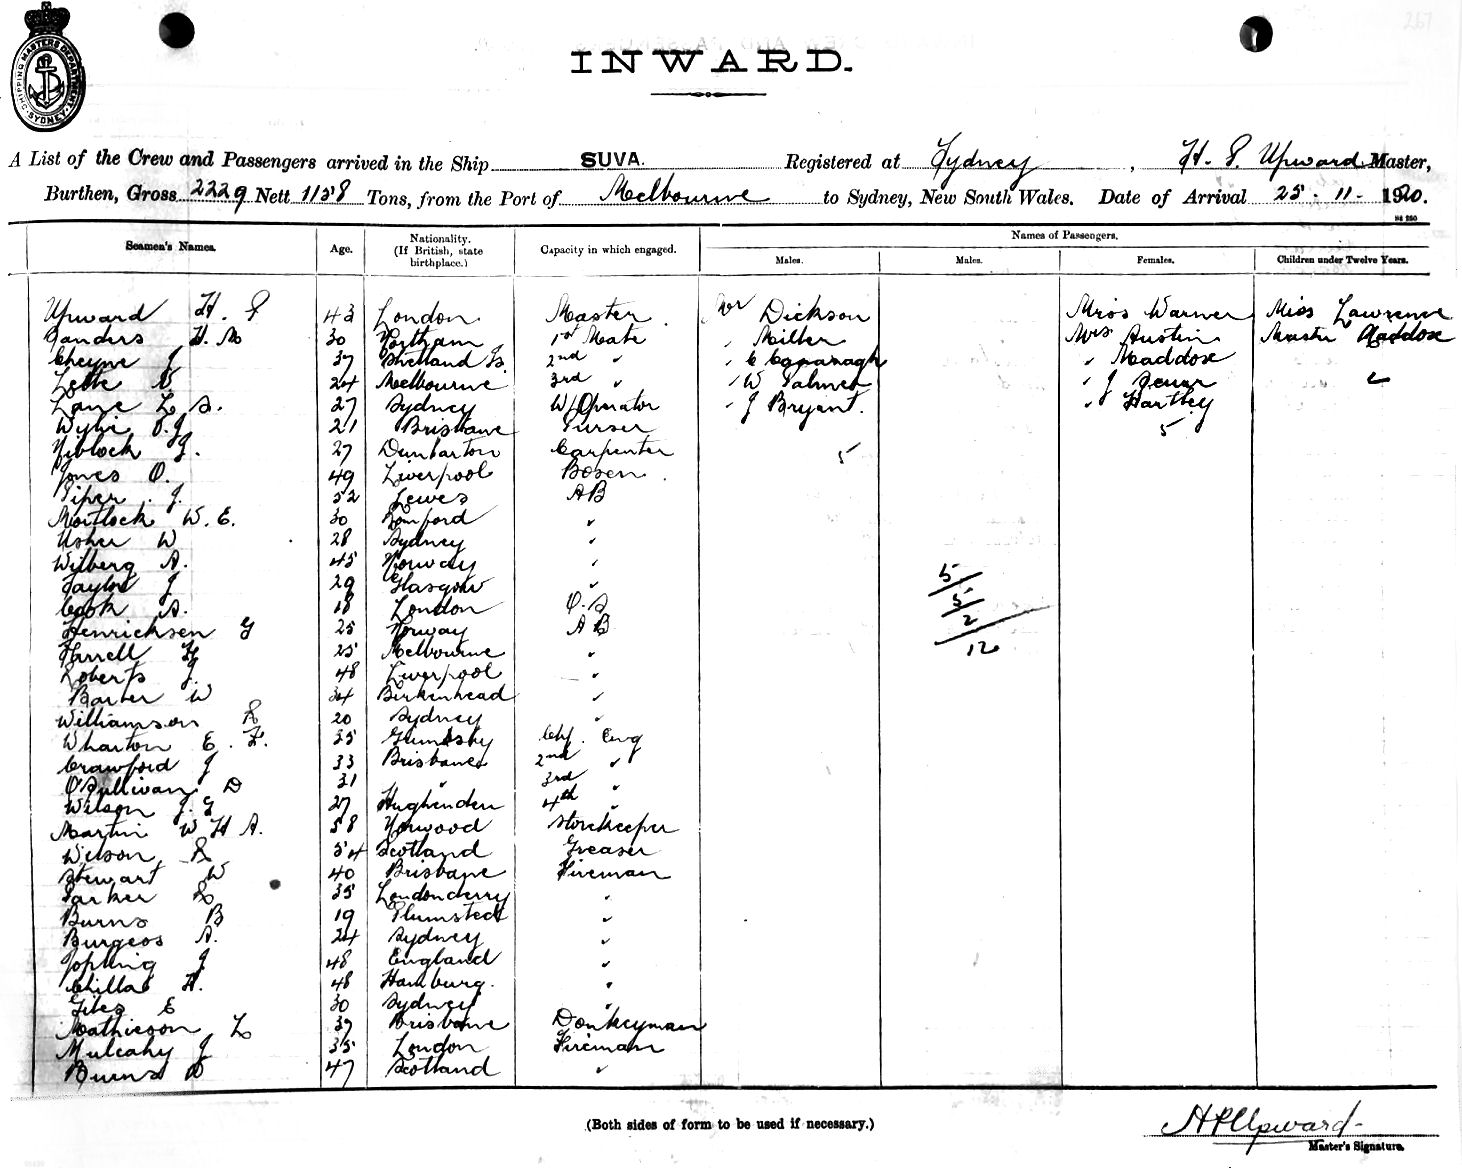 SHIPPING MASTERS DEPARTMENT
SYDNEY
267
INWARD.
A List of the Crew and Passengers arrived in the Ship SUVA. Registered at Sydney, H. P. Upward Master,
Burthen, Gross 2229 Nett 1138 Tons, from the Port of Melbourne to Sydney, New South Wales. Date of Arrival 25 - 11 - 1920.
Seamen's Names. Age. Nationality. (If British, state birthplace.) Capacity in which engaged. Names of Passengers.
Males. Males. Females. Children under Twelve Years.
Upward H. P 43 London Master Mr Dickson Miss Warner Miss Lawrence
Sanders H. M 30 1st Mate " Miller Mrs Austin Master Maddox
Cheyne J 37 Shetland Is. 2nd " " C Cavanagh " Maddox
24 Melbourne 3rd " " W Palmer " J 2
Lane L. S. 27 Sydney W/Operator " J Bryant. " Hartley
21 Brisbane Purser 5
Niblock J. 27 Dunbarton Carpenter 5
Jones O. 49 Liverpool Bosen
Piper J. 52 Lewes AB
Mortlock W. E. 30 Romford "
Usher W 28 Sydney "
Wilberg A. 45 Norway "
Taylor J 29 Glasgow "
Cook A. 18 London O.S
Henricksen G 25 Norway AB
H 25 Melbourne "
Roberts J. 48 Liverpool "
Barber W 34 Birkenhead "
Williamson R 20 Sydney "
Wharton E. F. 35 Grimsby Chf. Eng
Crawford J 33 Brisbane 2nd "
O'Sullivan D 31 " 3rd "
Wilson J. G 27 Hughenden 4th "
Martin W H A. 58 Norwood Storekeeper
Wilson R 54 Scotland Greaser
Stewart W 40 Brisbane Fireman
Parker R 35 Londonderry "
Burns B 19 Plumstead "
Burgess A. 24 Sydney "
Jopling J 48 England "
H. 48 Hamburg. "
Giles E 30 Sydney "
Mathieson L 39 Brisbane Donkeyman
Mulcahy J 35 London Fireman
Burns D 47 Scotland "
5
5
2
12
(Both sides of form to be used if necessary.)
H P Upward
Master's Signature.